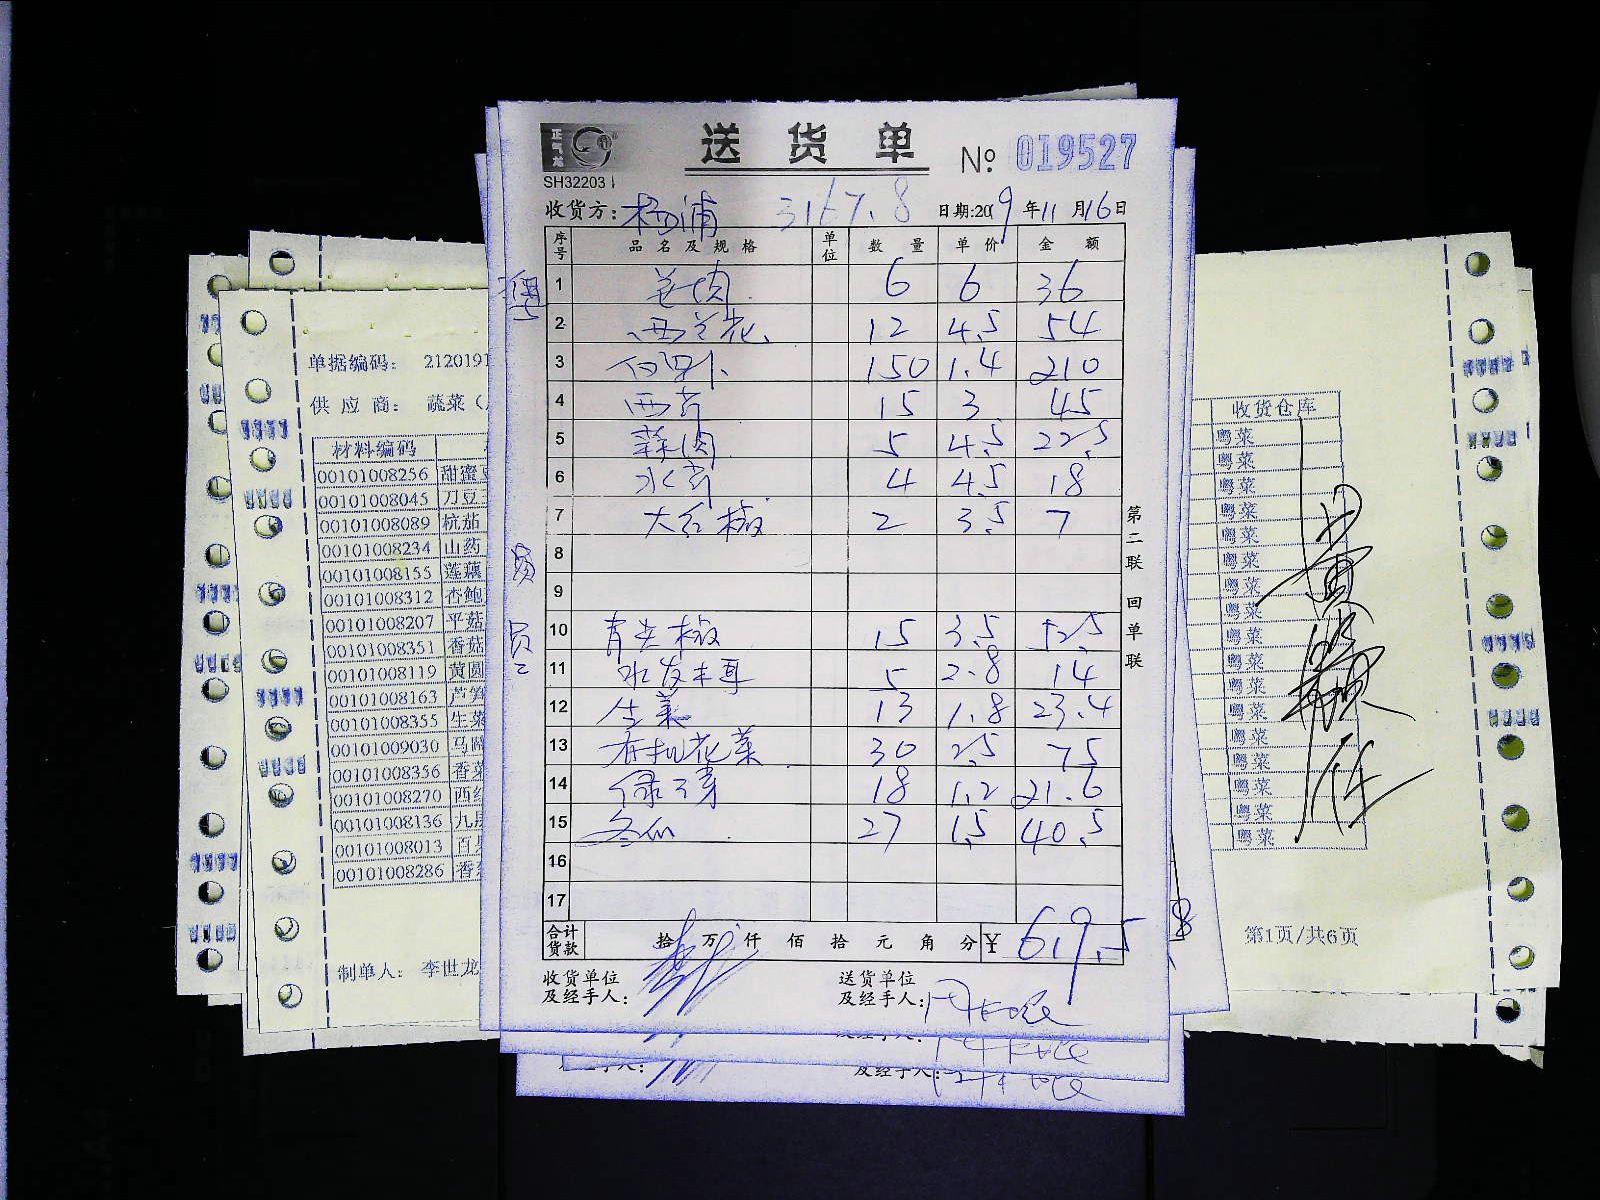 正气龙
送 货 单
№ 019527
SH32203
收货方: 杨浦 3167.8 日期:2019年11月16日
序号 品名及规格 单位 数量 单价 金额
1 姜肉 6 6 36
2 西兰花 12 4.5 54
3 白萝卜 150 1.4 210
4 西芹 15 3 45
5 蒜肉 5 4.5 22.5
6 水芹 4 4.5 18
7 大红椒 2 3.5 7
8
9
10 青尖椒 15 3.5 52.5
11 水发木耳 5 2.8 14
12 生菜 13 1.8 23.4
13 有机花菜 30 2.5 75
14 绿豆芽 18 1.2 21.6
15 冬瓜 27 1.5 40.5
16
17
合计货款 拾 万 仟 佰 拾 元 角 分 ¥ 619.5
收货单位及经手人:
送货单位及经手人:
第二联 回单联
粤
员工
单据编码: 2120191
供 应 商: 蔬菜（
材料编码
00101008256 甜蜜豆
00101008045 刀豆
00101008089 杭茄
00101008234 山药
00101008155 莲藕
00101008312 杏鲍
00101008207 平菇
00101008351 香菇
00101008119 黄圆
00101008163 芦笋
00101008355 生菜
00101009030 马蹄
00101008356 香菜
00101008270 西红
00101008136 九层
00101008013 百
00101008286 香
制单人: 李世龙
收货仓库
粤菜
粤菜
粤菜
粤菜
粤菜
粤菜
粤菜
粤菜
粤菜
粤菜
粤菜
粤菜
粤菜
粤菜
粤菜
粤菜
粤菜
第1页/共6页
8
及经手人:
及经手人: